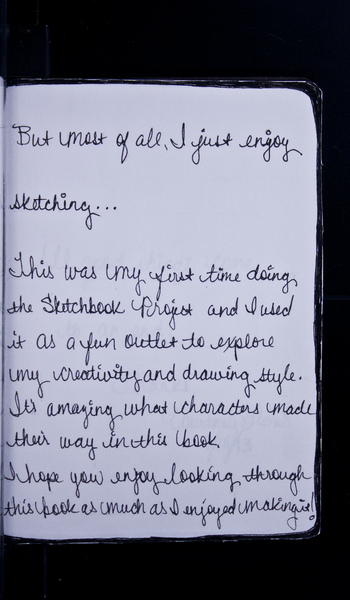 But most of all, I just enjoy
sketching...
This was my first time doing
the Sketchbook Project and I used
it as a fun outlet to explore
my creativity and drawing style.
It's amazing what characters made
their way in this book
I hope you enjoy looking through
this book as much as I enjoyed making it!